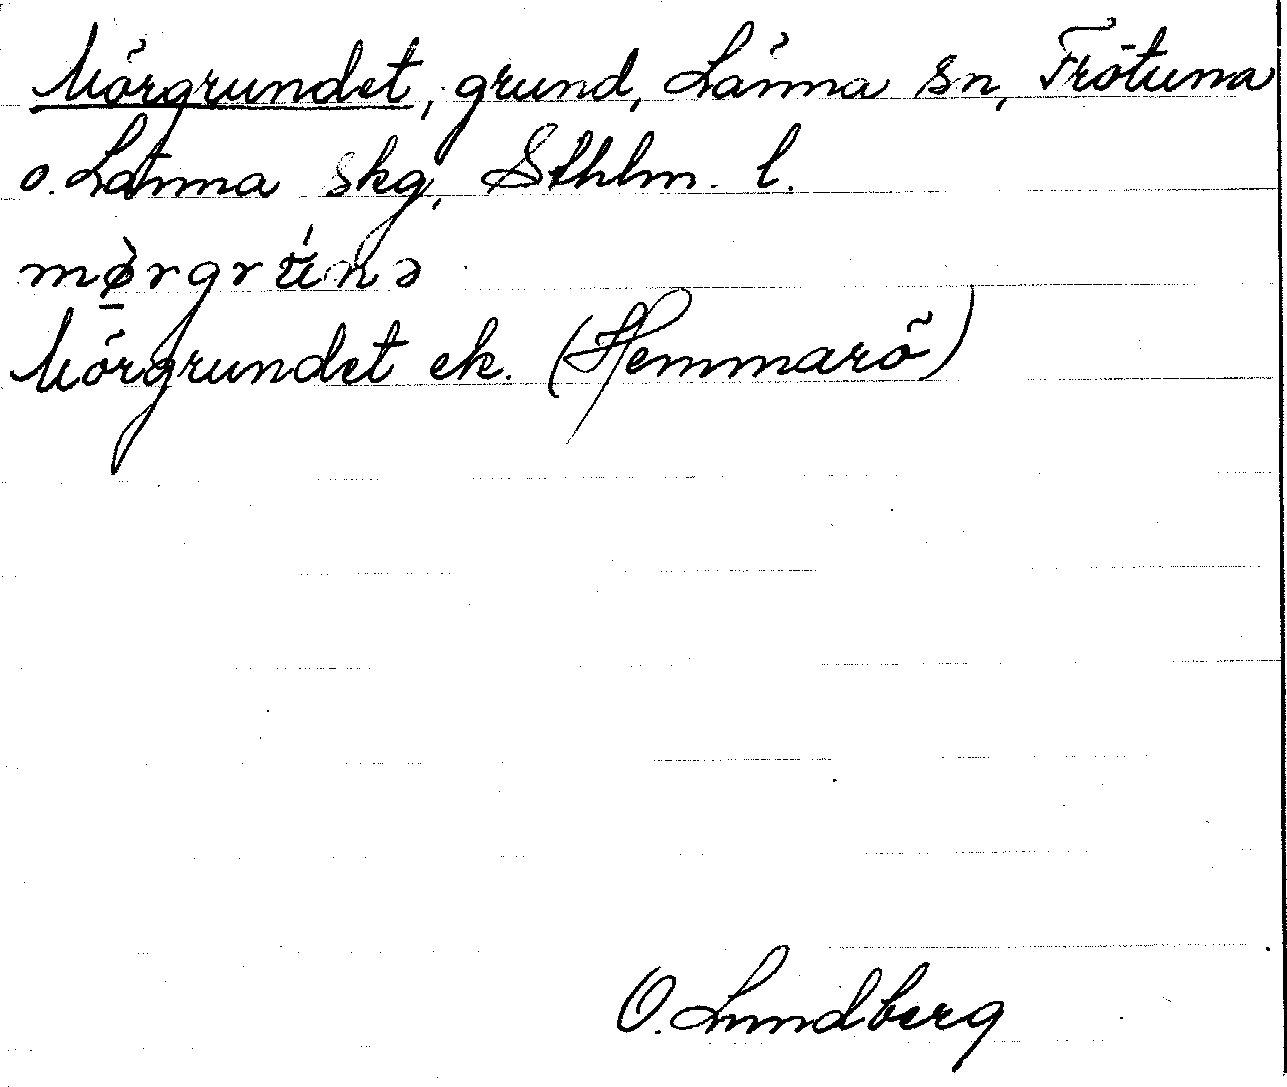 Mörgrundet, grund, Länna sn, Frötuna
o. Länna skg, Sthlm. l.
Mörgrundet ek. (Hemmarö)
O. Lundberg